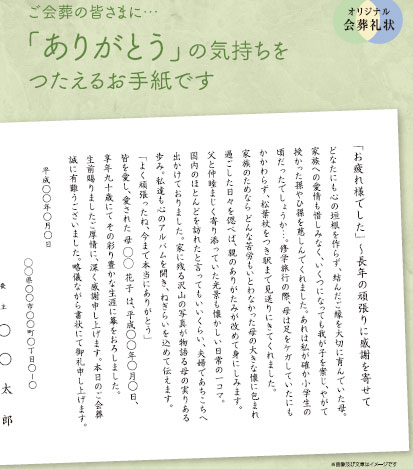 ご会葬の皆さまに…
「ありがとう」の気持ちを
つたえるお手紙です
オリジナル
会葬礼状
「お疲れ様でした」～長年の頑張りに感謝を寄せて
どなたにも心の垣根を作らず、結んだご縁を大切に育んでいた母。
家族への愛情も惜しみなく、いくつになっても我が子を案じ、やがて
授かった孫やひ孫を慈しんでくれました。あれは私が確か小学生の
頃だったでしょうか…。修学旅行の際、母は足をケガしていたにも
かかわらず、松葉杖をつき駅まで見送りにきてくれました。
家族のためなら どんな苦労もいとわなかった母の大きな懐に包まれ
過ごした日々を偲べば、親のありがたみが改めて身にしみます。
父と仲睦まじく寄り添っていた光景も懐かしい日常の一コマ。
国内のほとんどを訪れたと言ってもいいくらい、夫婦であちこちへ
出かけておりました。家に残る沢山の写真が物語る母の実りある
歩み。私達も心のアルバムを開き、ねぎらいを込めて伝えます。
「よく頑張ったね、今まで本当にありがとう」
皆を愛し、愛された母 〇〇 花子は、平成〇〇年〇月〇日、
享年九十歳にてその彩り豊かな生涯に幕をおろしました。
生前賜りましたご厚情に、深く感謝申し上げます。本日のご会葬
誠に有難うございました。略儀ながら書状にて御礼申し上げます。
平成〇〇年〇月〇日
〇〇県〇〇市〇〇町〇丁目〇ー〇
喪主 〇〇 太郎
※画像及び文章はイメージです